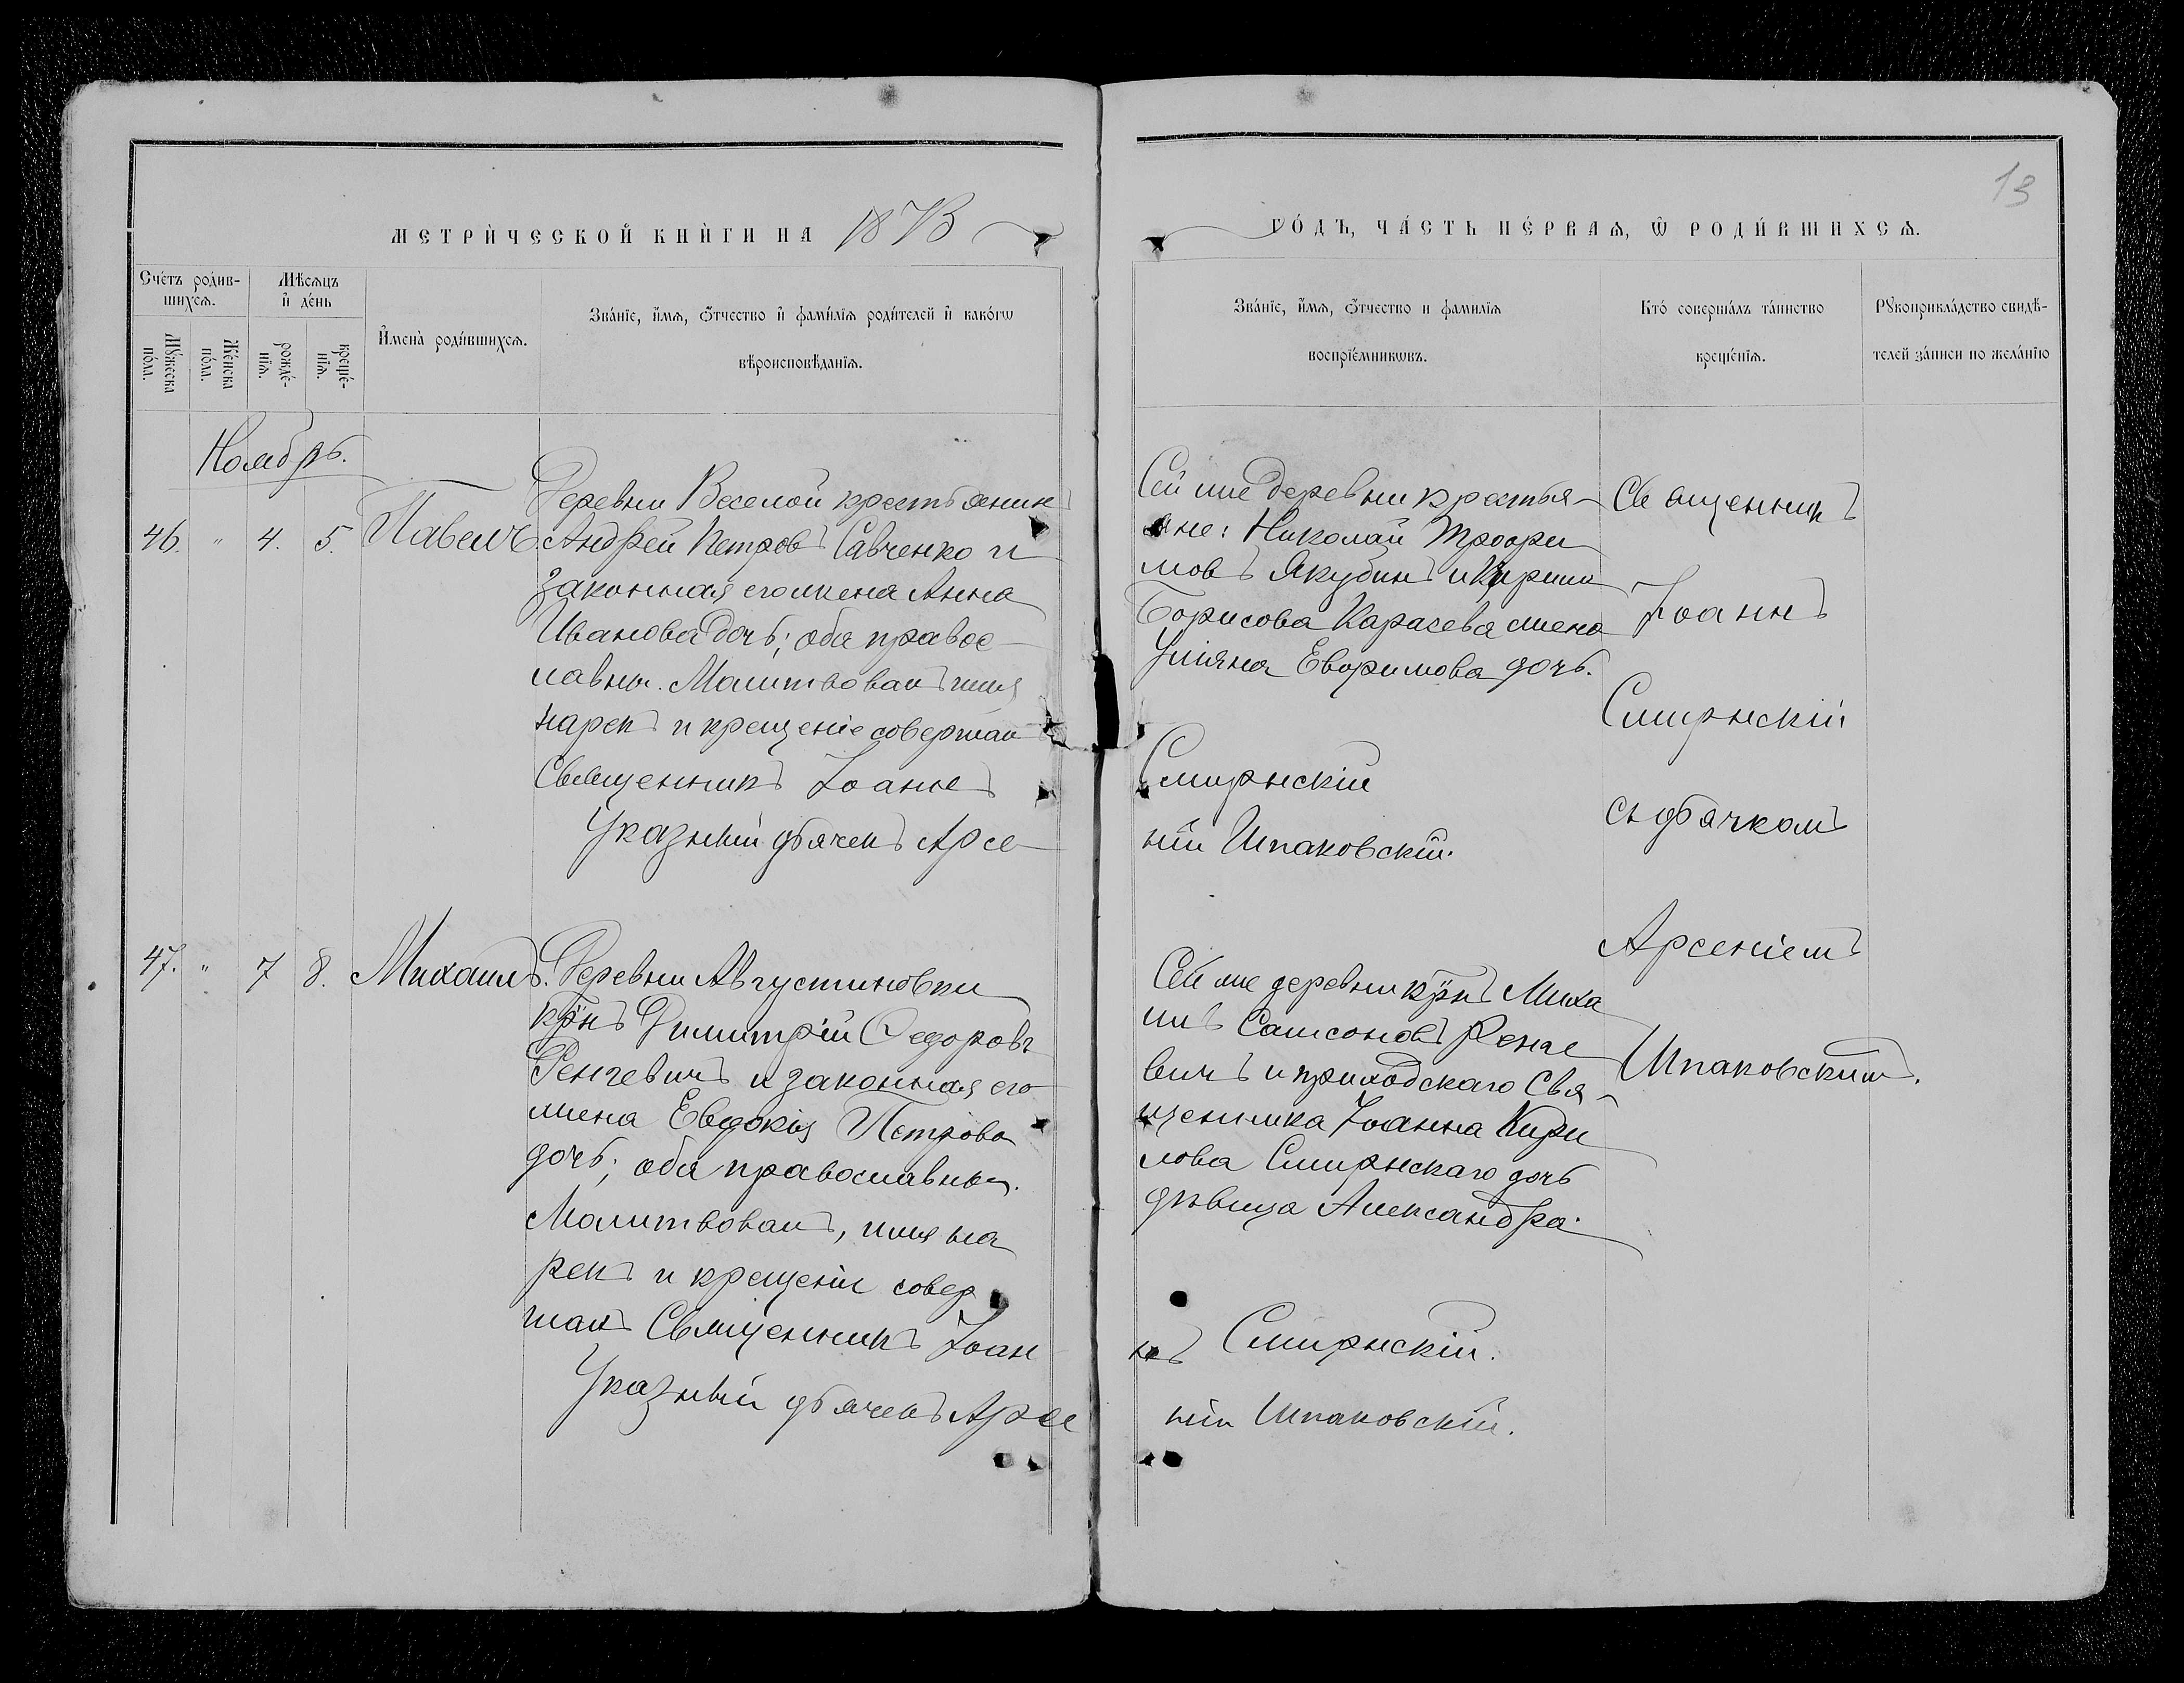 13
МЕТРИ́ЧЕСКОЙ КНИ́ГИ НА 1873
ГО́ДЪ, ЧА́СТЬ ПЕ́РВАЯ, Ѿ РОДИ́ВШИХСЯ.
Сче́тъ роди́в-
шихся.
Мѣ́сяцъ
и҆ де́нь
Му́жеска
по́ла.
Же́нска
по́ла.
рожде́-
нїя.
креще́-
нїя.
И҆мена̀ роди́вшихся.
Зва́нїе, и҆́мя, ѻ҆́тчество и҆ фами́лїя роди́телей и҆ како́гѡ
вѣроисповѣ́данїя.
Зва́нїе, и҆́мя, ѻ҆́тчество и фами́лїя
воспрїе́мникѡвъ.
Кто́ соверша́лъ та́инство
креще́нїя.
Рꙋкоприкла́дство свидѣ́-
телей за́писи по жела́нїю
Ноябрь.
46. " 4. 5. Павелъ.
Деревни Веселой крестьянинъ
Андрей Петровъ Савченко и
законная его жена Анна
Иванова дочь; оба правос-
лавны. Молитвовалъ имя
нарекъ и крещеніе совершалъ
Священникъ Іоаннъ
Указный дьячекъ Арсе-
Сей же деревни крестья-
яне: Николай Трофи
мовъ Якубинъ и Кирила
Борисова Карачева жена
Ульяна Ефимова дочь.
Смирнскій
ній Шпаковскій.
Священникъ
Іоаннъ
Смирнскій
съ дьячкомъ
Арсеніемъ
Шпаковскимъ.
47. " 7 8. Михаилъ.
Деревни Августиновки
крнъ Димитрій Федоровъ
Ренчевичъ и законная его
жена Евдокія Петрова
дочь; оба православны.
Молитвовалъ, имя на
рекъ и крещеніи совер
шалъ Священникъ Іоан
Указный дьячекъ Арсе
Сей же деревни крнъ Миха
илъ Самсоновъ Ренче
вичъ и приходскаго Свя-
щенника Іоанна Кири
лова Смирнскаго дочь
дѣвица Александра.
нъ Смирнскій.
ній Шпаковскій.